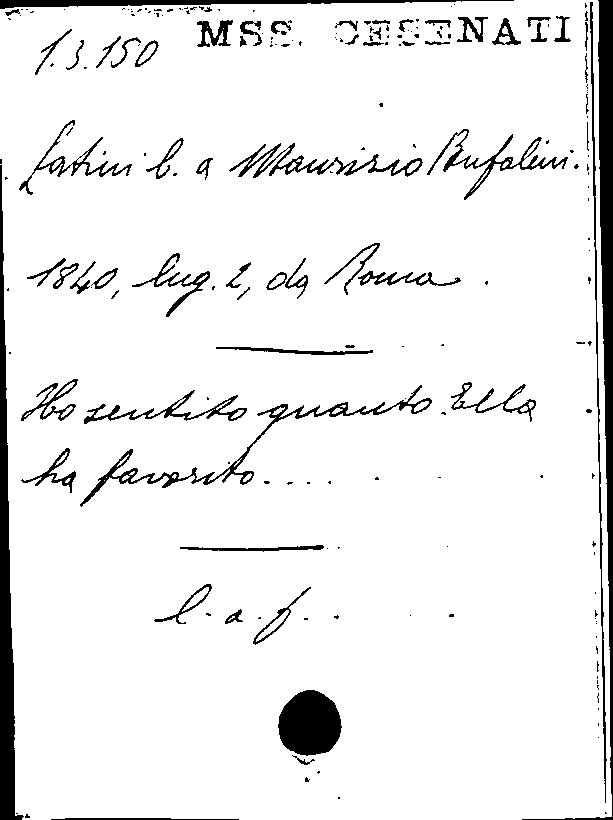 1.3.150 MSS. CESENATI
Latini l. a Maurizio Bufalini.
1840, lug. 2, da Roma.
Ho sentito quanto Ella
ha favorito....
l. a. f.